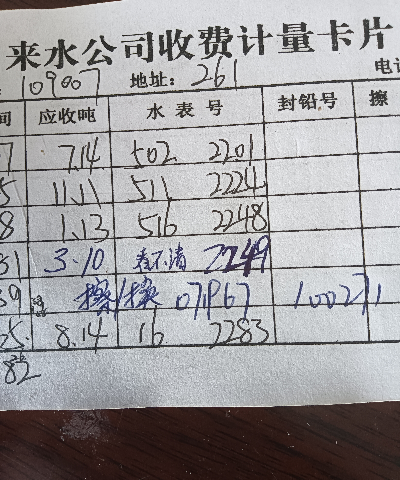 来水公司收费计量卡片
109007 地址: 261 电
间 应收吨 水表号 封铅号 擦
7 7.14 502 2201
5 11.11 511 2224
8 1.13 516 2248
31 3-10 看不清 2249
39 擦/换 071967 100271
25 8.14 16 2283
82